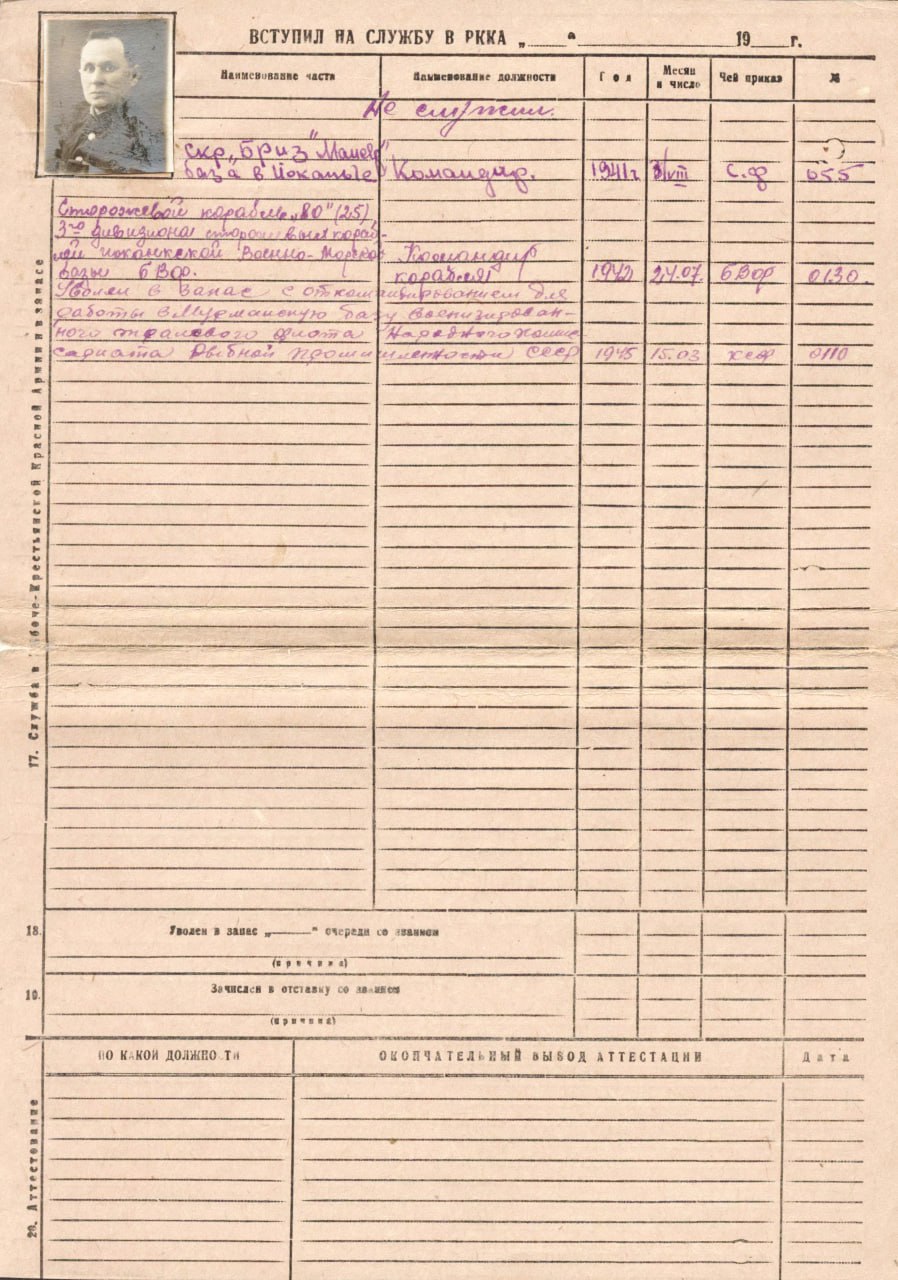 ВСТУПИЛ НА СЛУЖБУ В РККА „ “ 19 г.
Наименование части Наименование должности Год Месяц и число Чей приказ №
Не служил.
скр „Бриз"
база в Иоканьге Командир. 1941г 3/VIII С.Ф 655
Сторожевой корабль „80" (25)
3го дивизиона сторожевых кораб-
лей иоканкской Военно-Морской Командир
базы БВФ. корабля 1942 24.07. БВФ 0130.
Уволен в запас с откомандированием для
работы в Мурманскую базу Военизирован-
ного тралового флота Народного комис
сариата Рыбной промышленности СССР 1945 15.03 КСФ 0110
17. Служба в Рабоче-Крестьянской Красной Армии и в запасе
18. Уволен в запас „ “ очереди со званием
(причина)
19. Зачислен в отставку со званием
(причина)
20. Аттестование
ПО КАКОЙ ДОЛЖНОСТИ ОКОНЧАТЕЛЬНЫЙ ВЫВОД АТТЕСТАЦИИ Дата